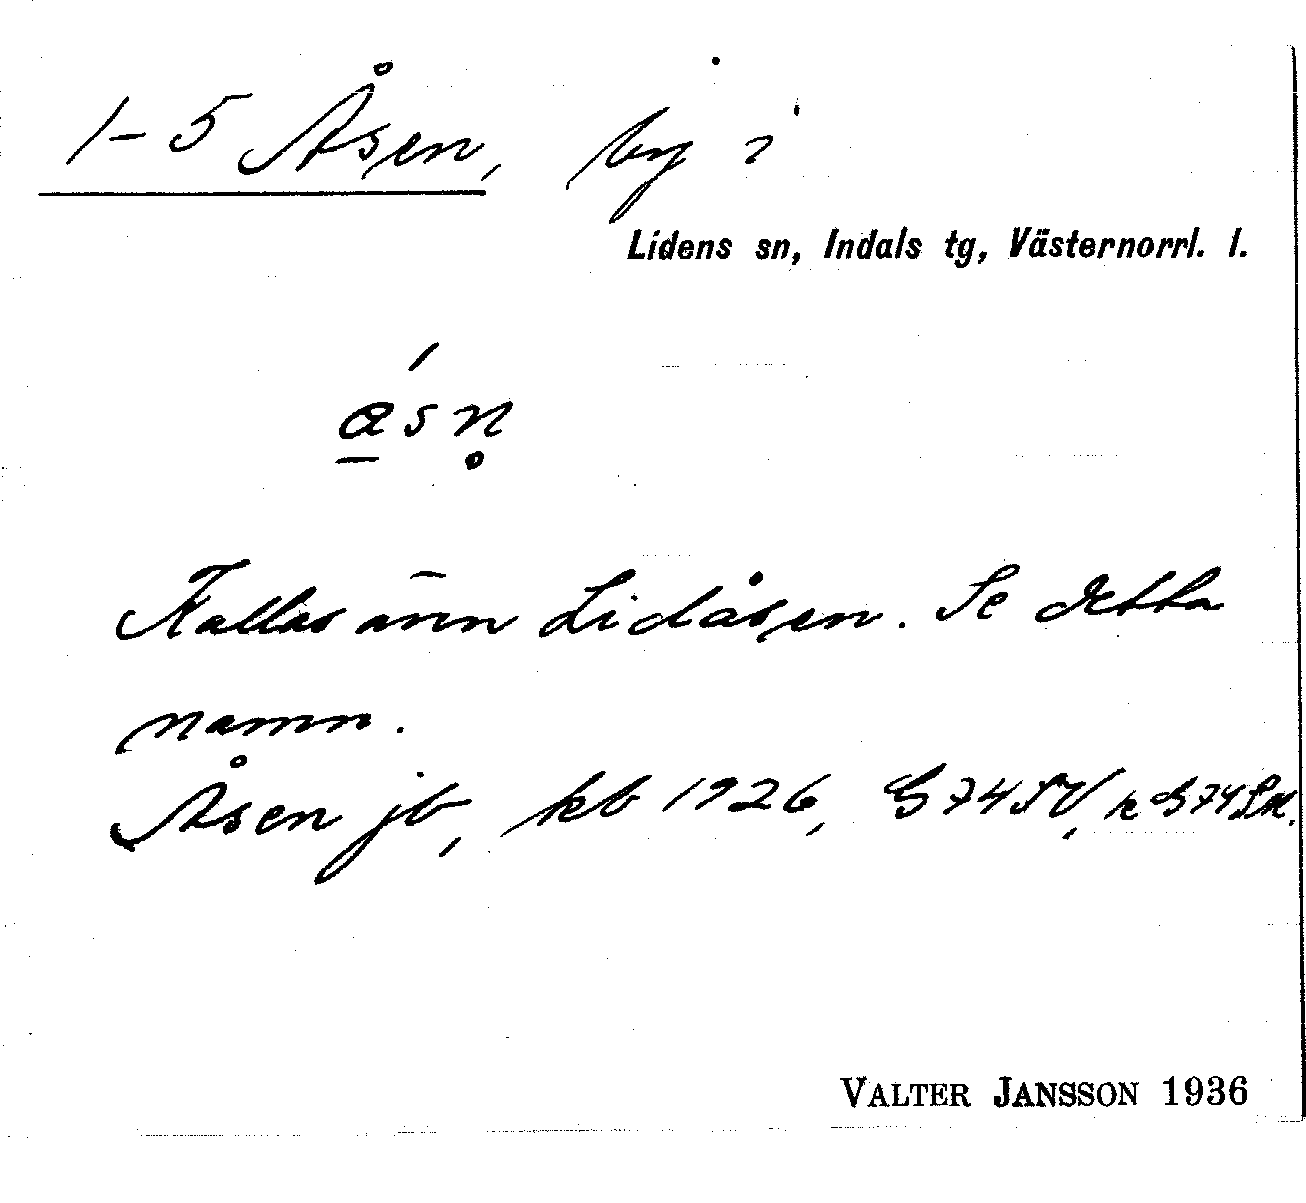 1-5 Åsen, by i
Lidens sn, Indals tg, Västernorrl. l.
Kallas även Lidåsen. Se detta
namn.
Åsen jb, kb 1926, G 74 SV, k G 74
VALTER JANSSON 1936